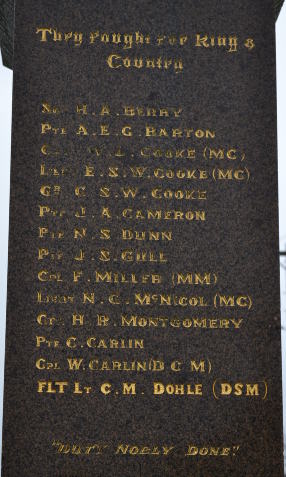 They Fought For King &
Country
H. A. BERRY
PTE A. E. G. BARTON
W. L. COOKE (MC)
LIEUT E. S. W. COOKE (MC)
GR C. S. W. COOKE
PTE J. A. CAMERON
PTE N. S. DUNN
PTE J. S. GULL
CPL F. MILLER (MM)
LIEUT N. C. McNICOL (MC)
H. R. MONTGOMERY
PTE C. CARLIN
CPL W. CARLIN (D C M)
FLT LT C. M. DOHLE (DSM)
"DUTY NOBLY DONE"